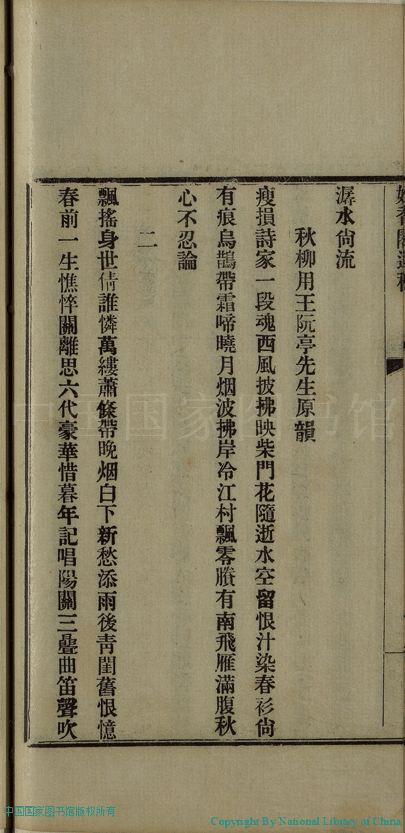 潺水尙流
秋柳用王阮亭先生原韻
瘦損詩家一段魂西風披拂映柴門花隨逝水空留恨汁染春衫尙
有痕烏鵲帶霜啼曉月烟波拂岸冷江村飄零賸有南飛雁滿腹秋
心不忍論
二
飄搖身世倩誰憐萬縷蕭條帶晚烟白下新愁添雨後靑閨舊恨憶
春前一生憔悴關離思六代豪華惜暮年記唱陽關三疊曲笛聲吹
中国国家图书馆
中国国家图书馆版权所有
Copyright By National Library of China